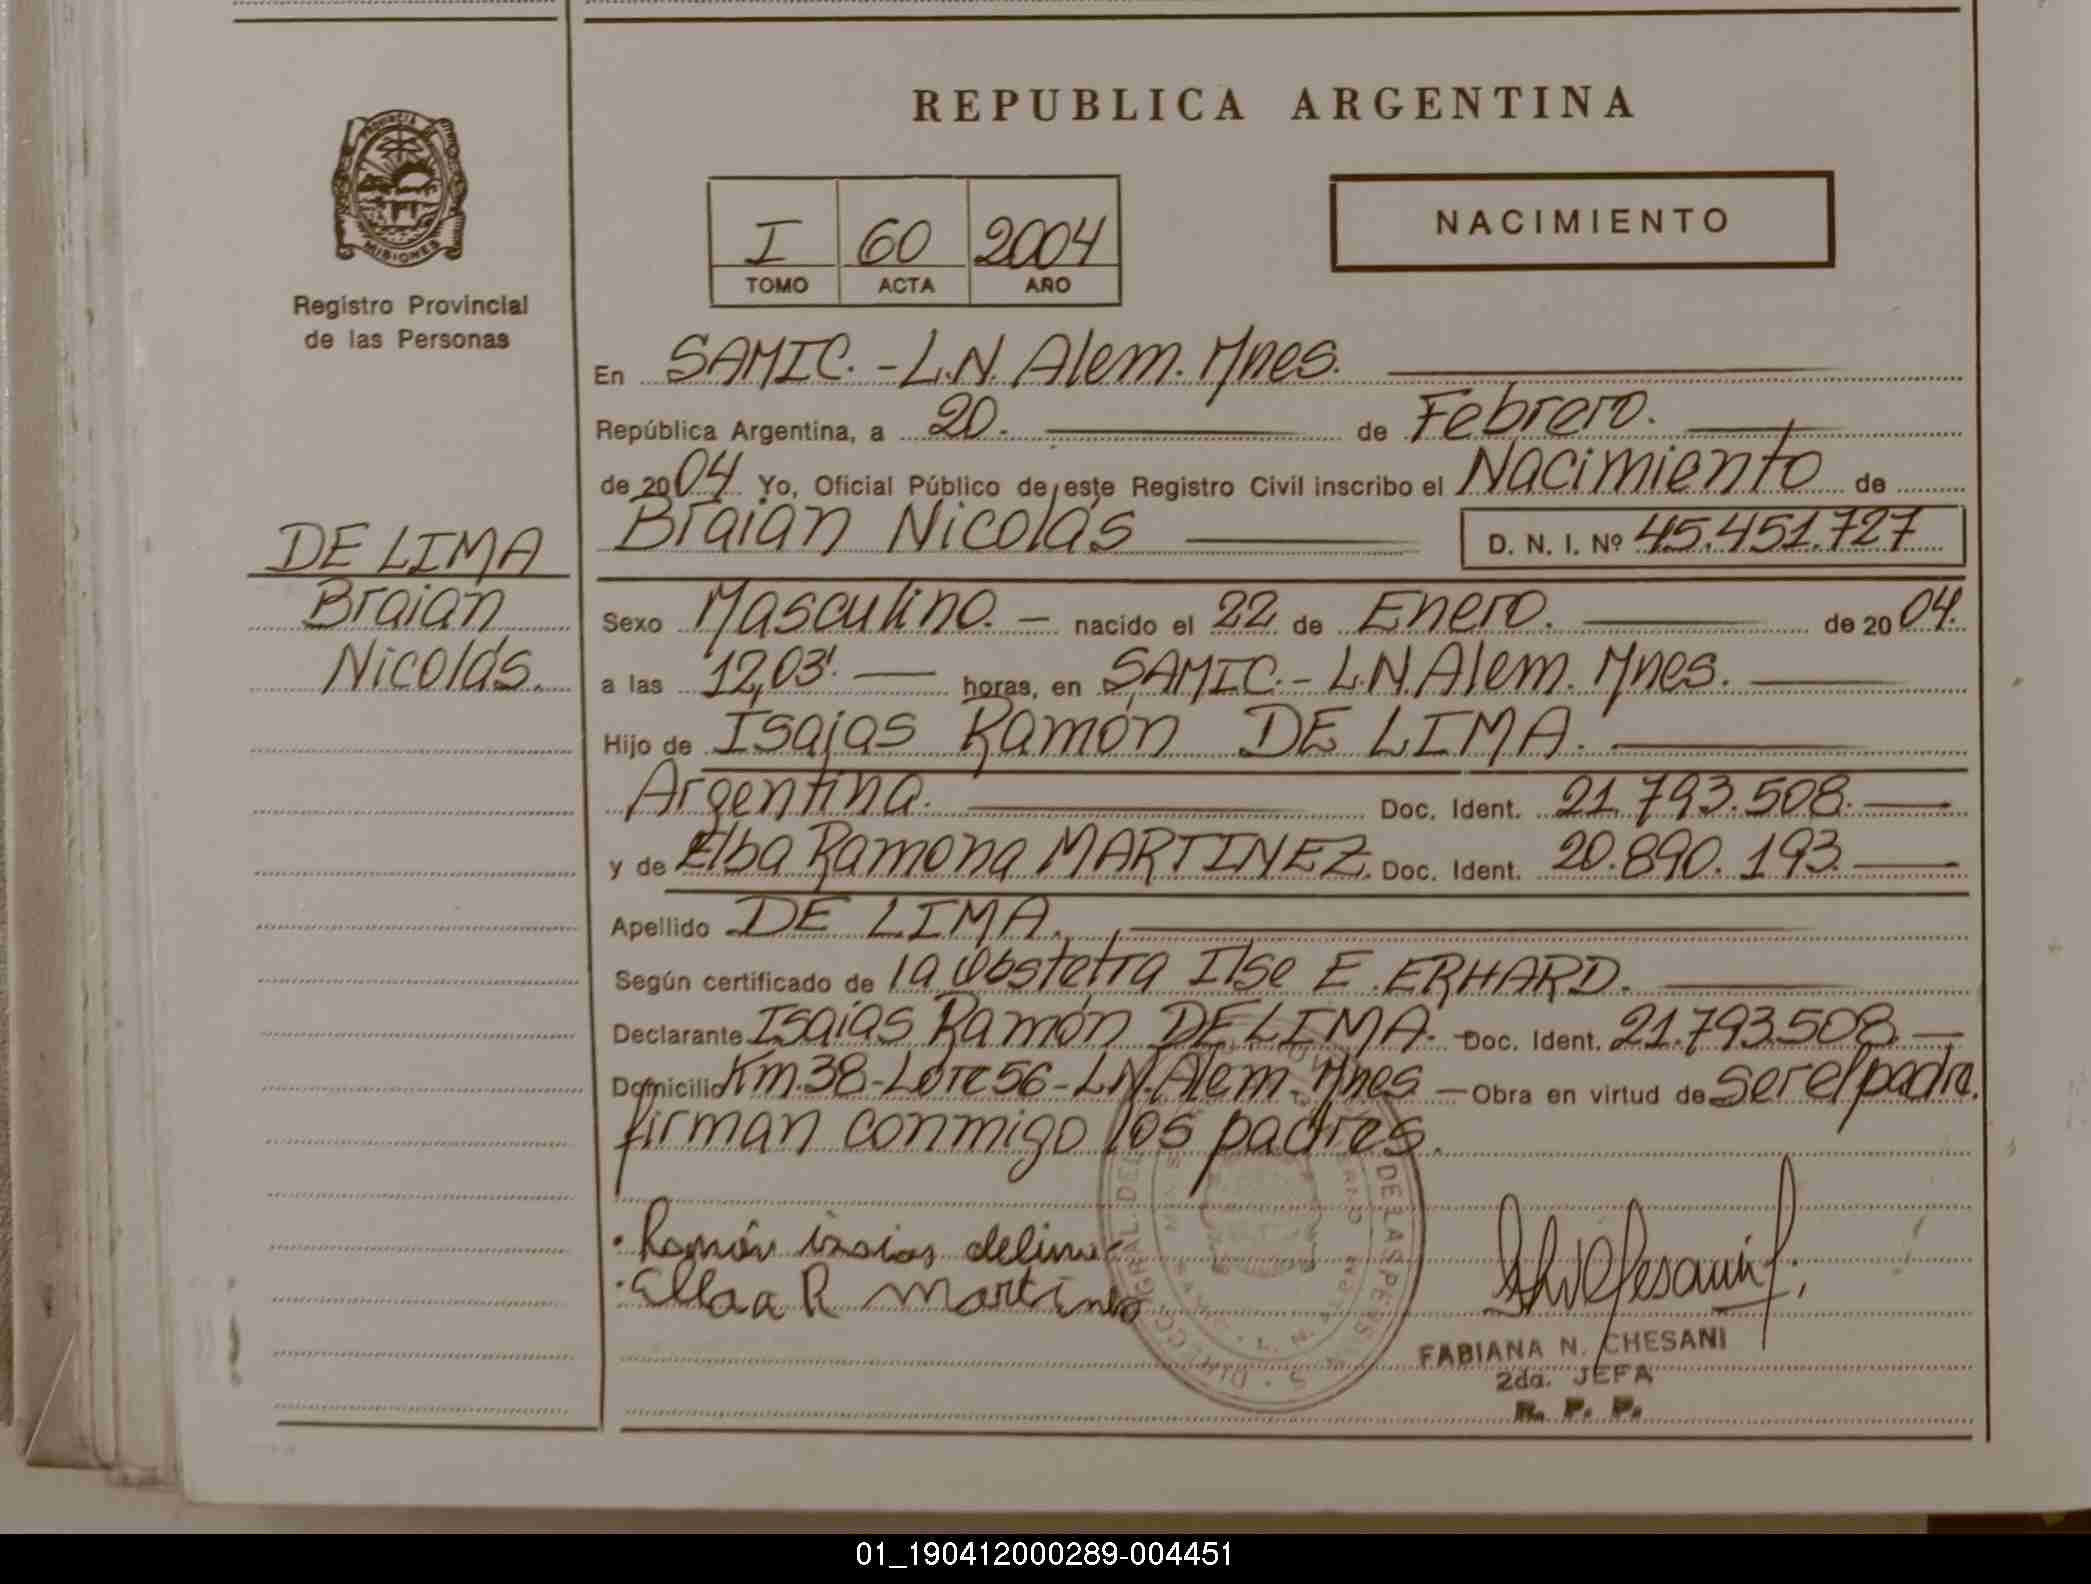 REPUBLICA ARGENTINA
PROVINCIA DE
MISIONES
Registro Provincial
de las Personas
I 60 2004
TOMO ACTA AÑO
NACIMIENTO
En SAMIC. - L.N. Alem. Mnes.
República Argentina, a 20. de Febrero.
de 2004 Yo, Oficial Público de este Registro Civil inscribo el Nacimiento de
Braian Nicolás D. N. I. Nº 45.451.727
DE LIMA
Braian
Nicolás.
Sexo Masculino. - nacido el 22 de Enero. de 2004.
a las 12,03'. horas, en SAMIC. - L.N. Alem. Mnes.
Hijo de Isaías Ramón DE LIMA.
Argentina. Doc. Ident. 21.793.508.
y de Elba Ramona MARTINEZ. Doc. Ident. 20.890.193.
Apellido DE LIMA.
Según certificado de la Obstetra Ilse E. ERHARD.
Declarante Isaías Ramón DE LIMA. - Doc. Ident. 21.793.508. -
Domicilio Km.38 - Lote 56 - L.N. Alem. Mnes - Obra en virtud de ser el padre.
firman conmigo los padres.
Ramón isaias delima
R martines
FABIANA N. CHESANI
2da. JEFA
R. P. P.
DE LAS PERSONAS
01_190412000289-004451